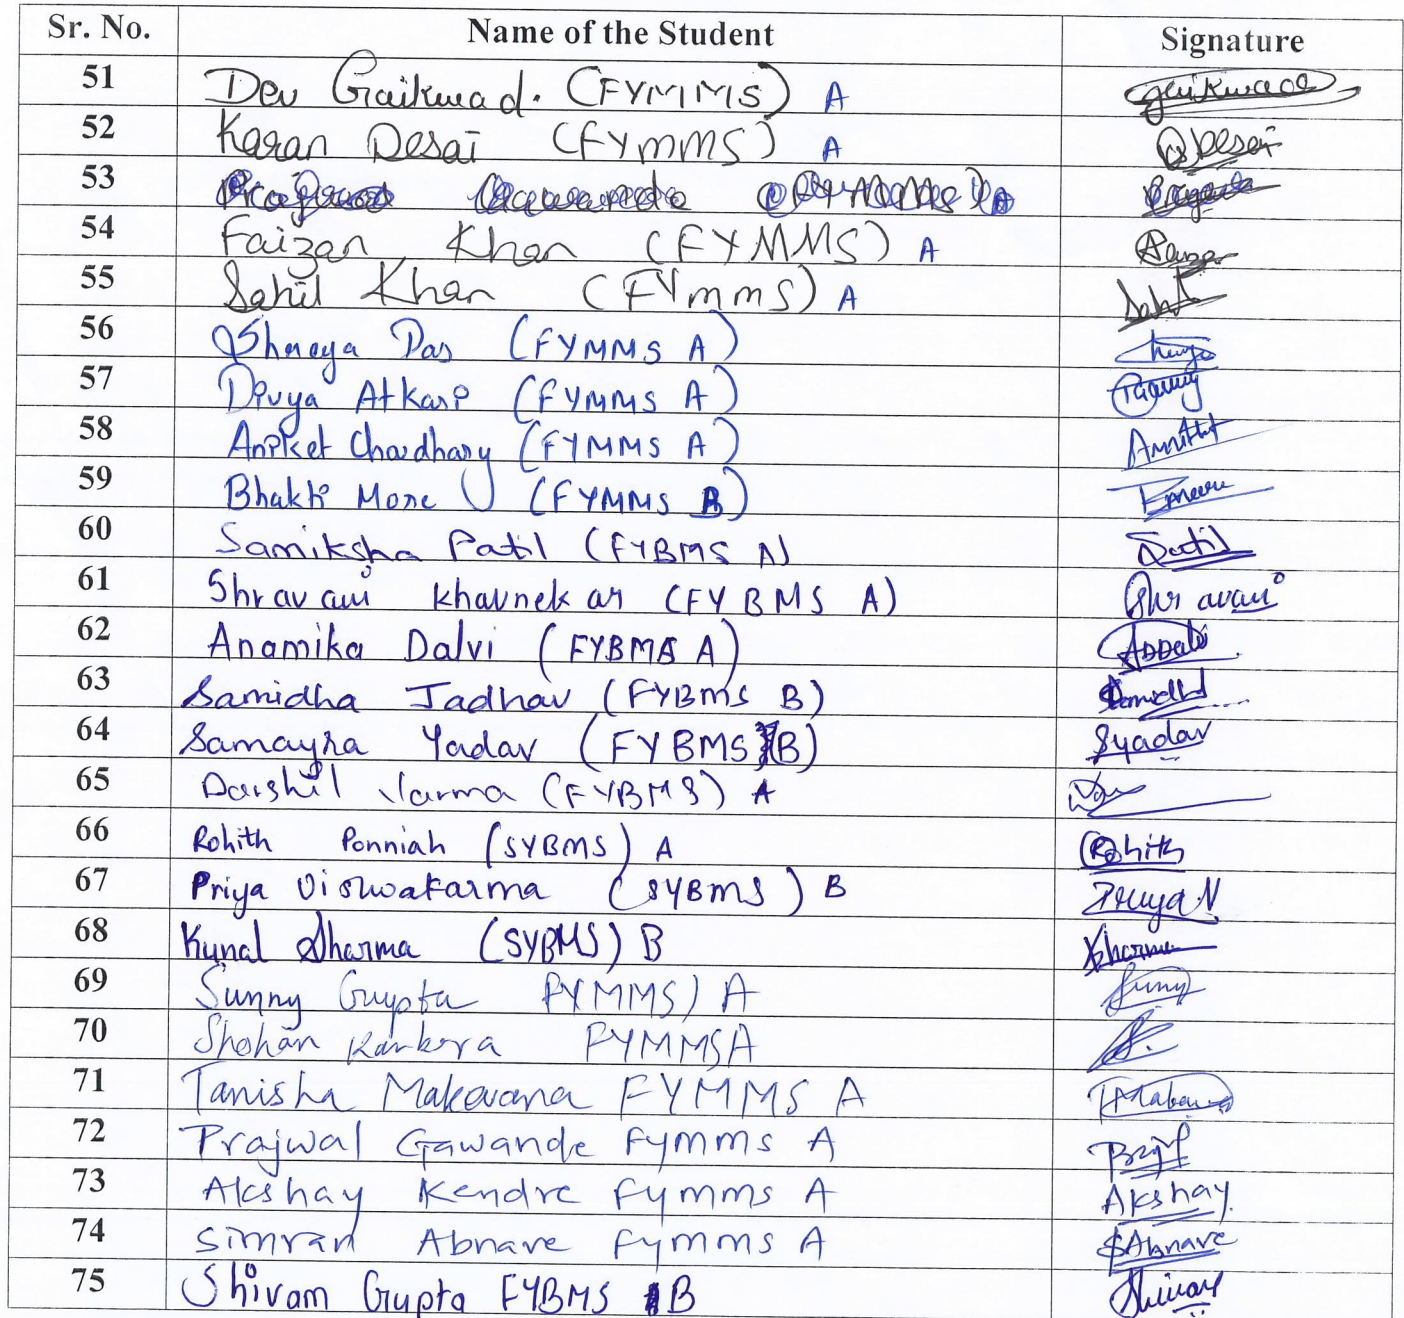 Sr. No. Name of the Student Signature
51 Dev Gaikwad. (FYMMS) A Gaikwad
52 Karan Desai (FYMMS) A Desai
53
54 Faizan Khan (FYMMS) A
55 Sahil Khan (FYmmS) A Sahil
56 Shreya Das (FYMMS A)
57 Divya Atkari (FYMMS A)
58 Aniket Chaudhary (FYMMS A)
59 Bhakti More (FYMMS B)
60 Samiksha Patil (FYBMS A) Patil
61 Shravani Khavnekar (FYBMS A) Shravani
62 Anamika Dalvi (FYBMS A)
63 Samidha Jadhav (FYBmS B) Samidha
64 Samayra Yadav (FYBMS B) Syadav
65 Darshil Varma (FYBMS) A
66 Rohith Ponniah (SYBMS) A Rohith
67 Priya Vishwakarma (SYBmS) B Priya V
68 Kunal Sharma (SYBMS) B Sharma
69 Sunny Gupta FYMMS) A Sunny
70 Shohan Karkera FYMMSA
71 Tanisha Makavana FYMMS A
72 Prajwal Gawande Fymms A
73 Akshay Kendre Fymms A Akshay
74 Simran Abnave Fymms A SAbnave
75 Shivam Gupta FYBMS B Shivam